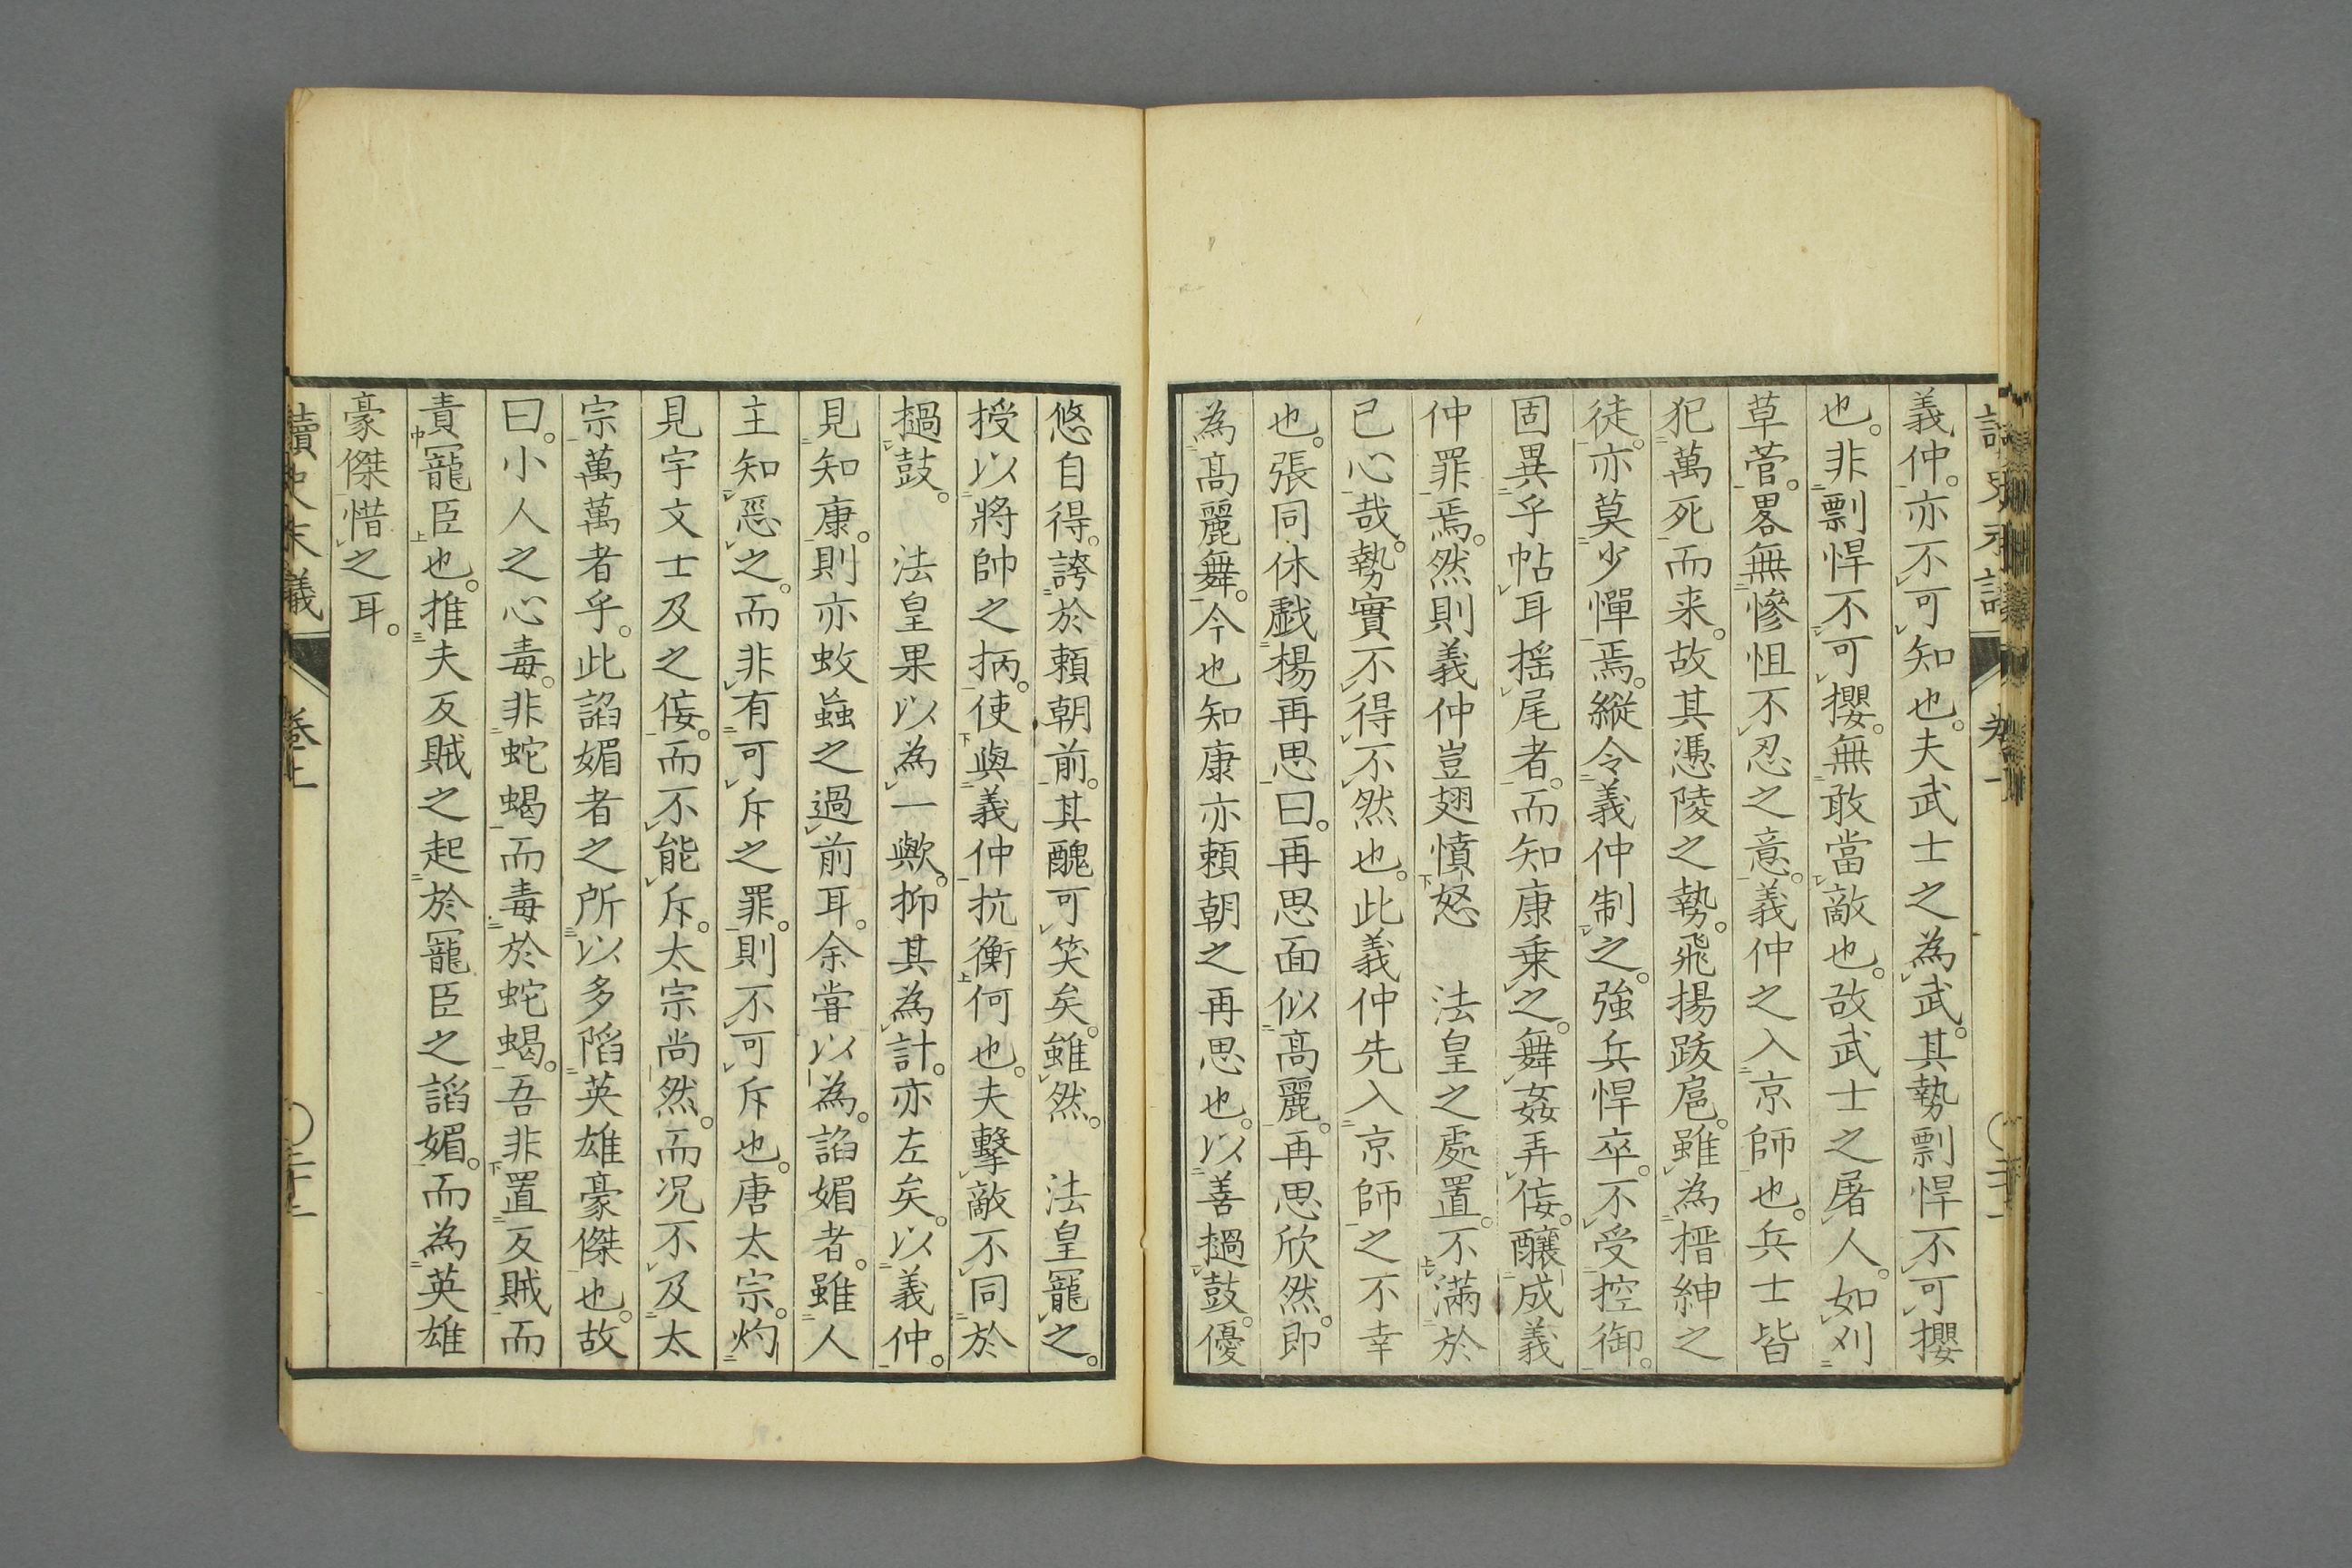 義仲。亦不可知也。夫武士之為武。其勢剽悍不可攖
也。非剽悍不可攖。無敢當敵也。故武士之屠人。如刈
草菅。畧無慘怛不忍之意。義仲之入京師也。兵士皆
犯萬死而来。故其憑陵之勢。飛揚跋扈。雖為搢紳之
徒。亦莫少憚焉。縱令義仲制之。強兵悍卒。不受控御。
固異乎帖耳搖尾者。而知康乗之。舞姦弄侫。釀成義
仲罪焉。然則義仲豈翅憤怒　法皇之處置。不滿於
已心哉。勢實不得不然也。此義仲先入京師之不幸
也。張同休戯楊再思曰。再思面似高麗。再思欣然。即
為高麗舞。今也知康亦頼朝之再思也。以善撾鼓。優
悠自得。誇於頼朝前。其醜可笑矣。雖然。　法皇寵之。
授以將帥之柄。使與義仲抗衡何也。夫擊敵不同於
撾鼓。　法皇果以為一歟。抑其為計。亦左矣。以義仲。
見知康。則亦蚊蝱之過前耳。余嘗以為。諂媚者。雖人
主知惡之。而非有可斥之罪。則不可斥也。唐太宗。灼
見宇文士及之侫。而不能斥。太宗尚然。而况不及太
宗萬萬者乎。此諂媚者之所以多陷英雄豪傑也。故
曰。小人之心毒。非蛇蝎而毒於蛇蝎。吾非置反賊而
責寵臣也。推夫反賊之起於寵臣之諂媚。而為英雄
豪傑惜之耳。
讀史末議　巻上